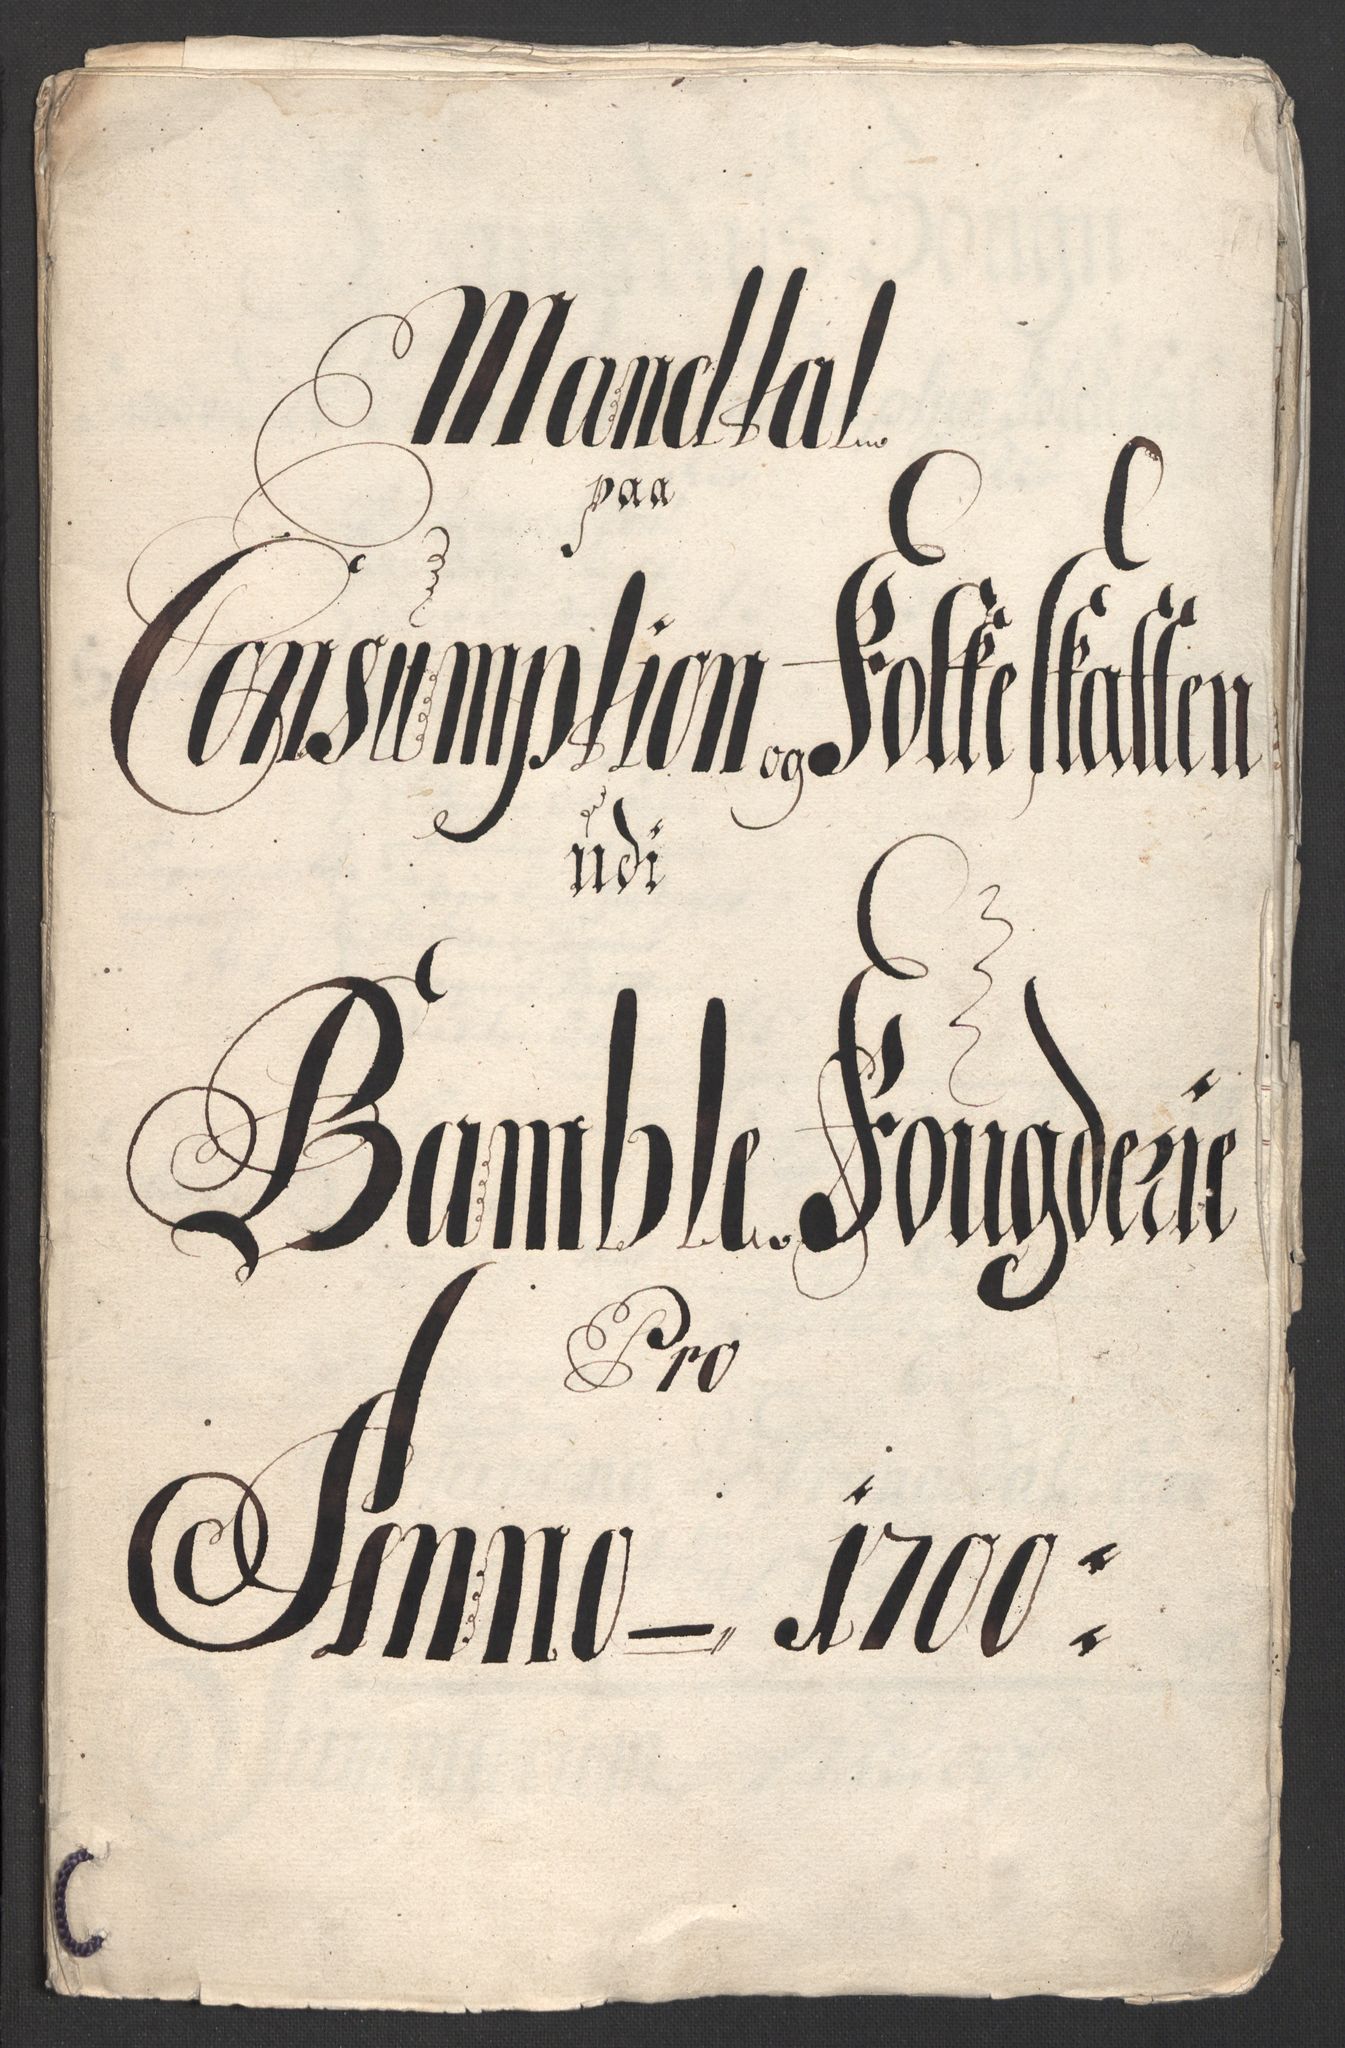 Mandtal
paa
Consumption og Folke skatten
udi
Bamble Fougderie
Pro
Anno 1700